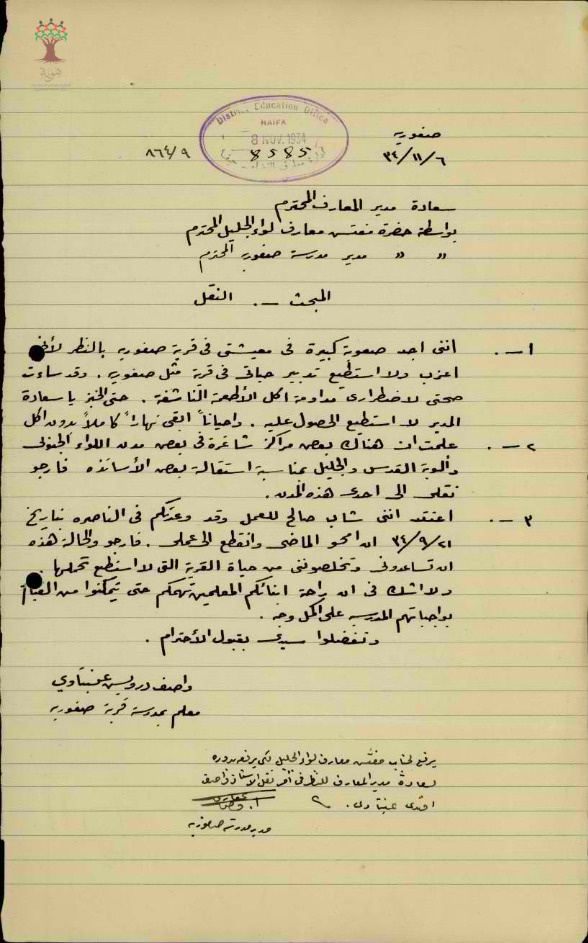 صفوريه
٣٤/١١/٦
District Education Office
HAIFA
8 NOV. 1934
8585
٨٦٤/٩
سعادة مدير المعارف المحترم
بواسطة حضرة مفتش معارف لواء الجليل المحترم
" " مدير مدرسة صفوريه المحترم
المبحث - . النقل
١ - . انني اجد صعوبة كبيرة في معيشتي في قرية صفوريه بالنظر لأنني
اعزب ولا استطيع تدبير حياتي في قرية مثل صفوريه . وقد ساءت
صحتي لاضطراري مداومة اكل الأطعمة الناشفة . حتى الخبز يا سعادة
المدير لا استطيع الحصول عليه . واحياناً ابقى نهاراً كاملاً بدون اكل
٢ - . علمت ان هناك بعض مراكز شاغرة في بعض مدن اللواء الجنوبي
والوية القدس والجليل بمناسبة استقالة بعض الأساتذه فارجو
نقلي الى احدى هذه المدن .
٣ - . اعتقد انني شاب صالح للعمل وقد وعدتكم في الناصره بتاريخ
٣٤/٩/٢١ ان امحو الماضي وانقطع الى عملي . فارجو والحالة هذه
ان تساعدوني وتخلصونني من حياة القرية التي لا استطيع تحملها .
ولا اشك في ان راحة ابنائكم المعلمين تهمكم حتى يتمكنوا من القيام
بواجباتهم المدرسيه على اكمل وجه .
وتفضلوا سيدي بقبول الأحترام .
واصف درويش عنبتاوي
معلم بمدرسة قرية صفوريه
يرفع لجناب مفتش معارف لواء الجليل لكي يرفعه بدوره
لسعادة مدير المعارف للنظر في امر نقل الاستاذ واصف
افندي عنبتاوي .
مدير مدرسة صفوريه